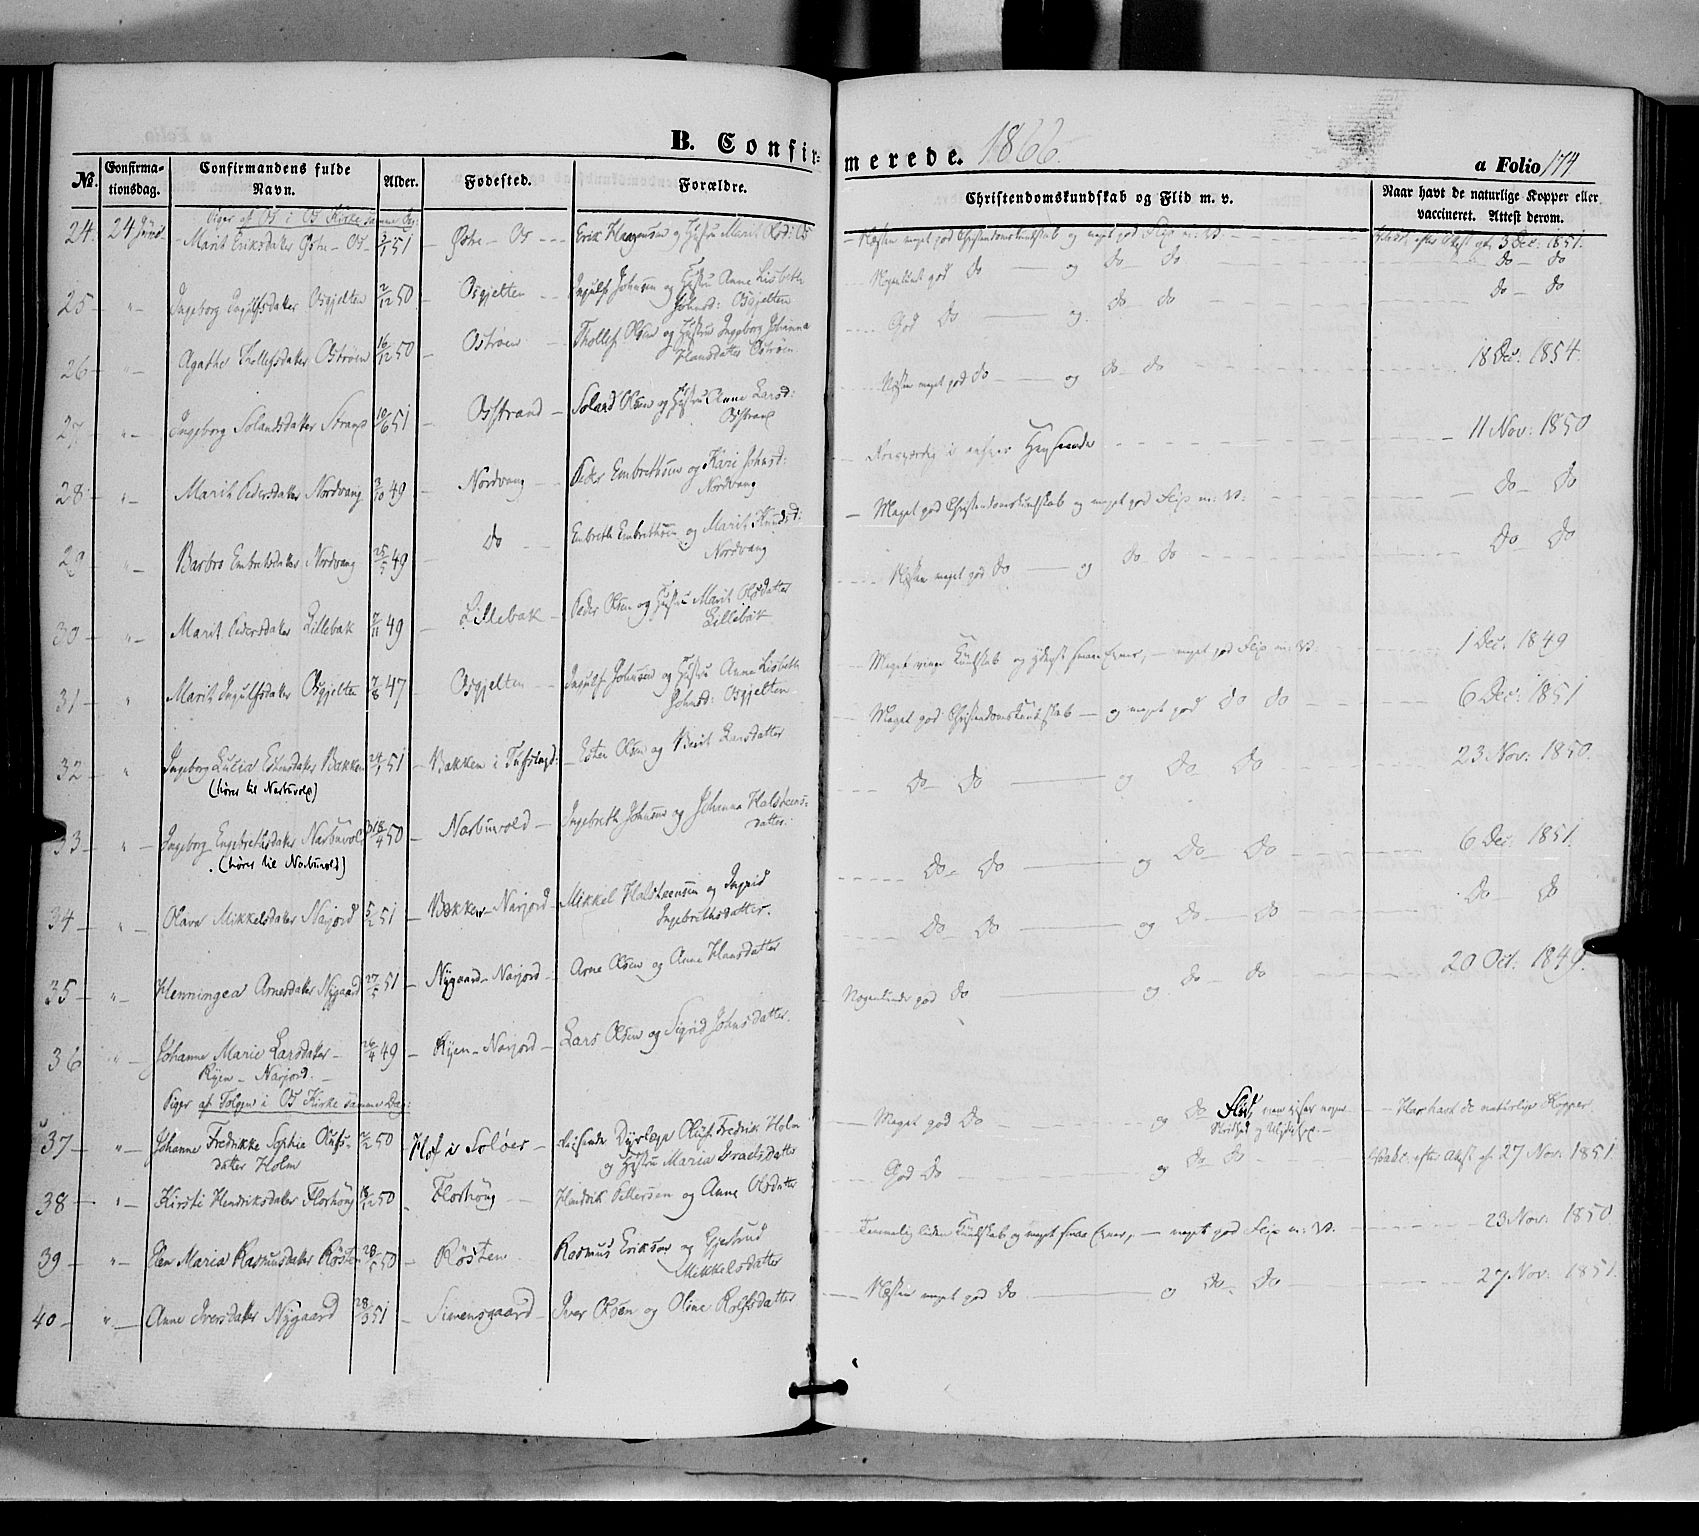 B. Confir-
merede. 1866.
a Folio 174
No.
Confirma-
tionsdag.
Confirmandens fulde
Navn.
Alder.
Fødested.
Forældre.
Christendomskundskab og Flid m. v.
Naar havt de naturlige Kopper eller
vaccineret. Attest derom.
Piger af Os i Os Kirke samme Dag:
24. 24 Juni Marit Eriksdatter Østre-Os 51 Østre-Os Erik og Hustru Marit Os
Næsten meget god Christendomskundskab og meget god Flid m: V. 3 Dec: 1851.
25 " Ingeborg Ingulfsdatter Osgjelten 2/12 50 Osgjelten Ingulf Johnsen og Hustru Anne Lisbeth
Johnsd: Osgjelten
Nogenlunde god do og do do do do
26 " Agathe Thollefsdatter Oströen 16/12 50 Oströen Thollef Olsen og Hustru Ingeborg Johanna
Hansdatter Oströen
God do og do do do do
27 " Ingeborg Solandsdatter Strand 10/6 51 Osstrand Soland Olsen og Hustru Anne Larsd:
Osstrand
Næsten meget god do og do do 18 Dec: 1854.
28 " Marit Pedersdatter Nordvang 3/10 49 Nordvang Peder Embrethsen og Kari Johnsd:
Nordvang
11 Nov: 1850
29 " Barbro Embretsdatter Nordvang 25/5 49 do Embreth Embrethsen og Marit Knudsd:
Nordvang
Meget god Christendomskundskab og meget god Flid m: V: do do
30 " Marit Pedersdatter Lillebak 7/11 49 Lillebak Peder Olsen og Hustru Marit Olsdatter
Lillebak
Næsten meget god do og do do do do
31 " Marit Ingulfsdatter Osgjelten 7/8 47 Osgjelten Ingulf Johnsen og Hustru Anne Lisbeth
Johnsd: Osgjelten
Meget ringe Kundskab og yderst smaa Evner, meget god Flid m: V: 1 Dec: 1849
32 " Ingeborg Lucia Estensdatter Bakken 51 Bakken i Tufsingd: Esten Olsen og Berit Larsdatter
(hører til Narbuvold)
Meget god Christendomskundskab og meget god do do 6 Dec: 1851
33 " Ingeborg Engebrethsdatter Narbuvold 18/4 50 Narbuvold Ingebreth Johnsen og Johanna Halsteens-
datter.
(hører til Narbuvold)
do do og do do 23 Nov: 1850.
34 " Olava Mikkelsdatter Narjord 5/2 51 Bækken-Narjord Mikkel Halsteensen og Ingrid
Ingebrethsdatter.
do do og do do 6 Dec: 1851.
35 " Henningea Arnesdatter Nygaard 27/5 51 Nygaard-Narjord Arne Olsen og Anne Hansdatter
do do og do do do do
36 " Johanne Marie Larsdatter 26/4 49 Ryen-Narjord Lars Olsen og Sigrid Johnsdatter.
Ryen-Narjord.
Nogenlunde god do og do do 20 Oct. 1849.
Piger af Tolgen i Os Kirke samme Dag:
37 " Johanne Fredrikke Sophie Olufs- 50 Hof i Soløer reisende Dyrlæge Oluf Fredrik Holm
datter Holm og Hustru Maria Israelsdatter
Meget god do og do Flid, men viser nogen
Har havt de naturlige Kopper
38 " Kirsti Hendriksdatter Florhöug 18/12 50 Florhöug Hendrik Pettersen og Anne Olsdatter
God do og do do Vakc: efter Attest af 27 Nov: 1851.
39 " Elen Maria Rasmusdatter Røsten 50 Røsten Rasmus Eriksen og Gjertrud
Mikkelsdatter
Temmelig liden Kundskab og meget smaa Evner, meget god Flid m: V. 23 Nov: 1850.
40 " Anne Iversdatter Nygaard 28/3 51 Simensgaard Iver Olsen og Oline Rolfsdatter
Næsten meget god do og do do 27 Nov: 1851.